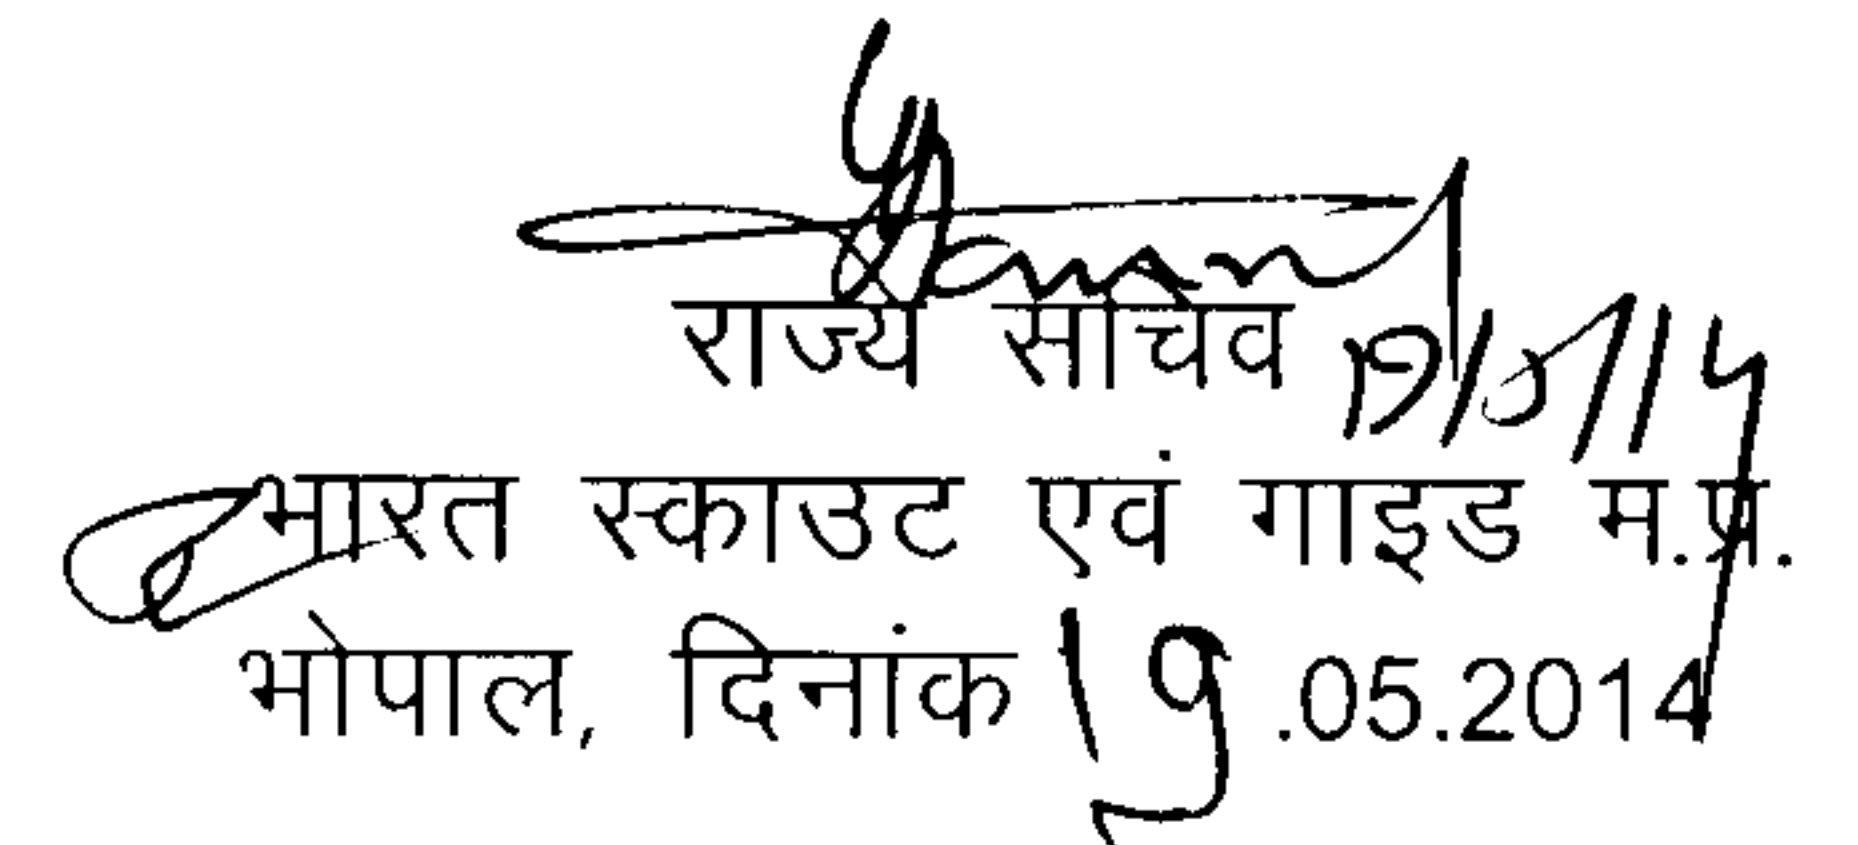 राज्य सचिव
19/5/14
भारत स्काउट एवं गाइड म.प्र.
भोपाल, दिनांक 19.05.2014